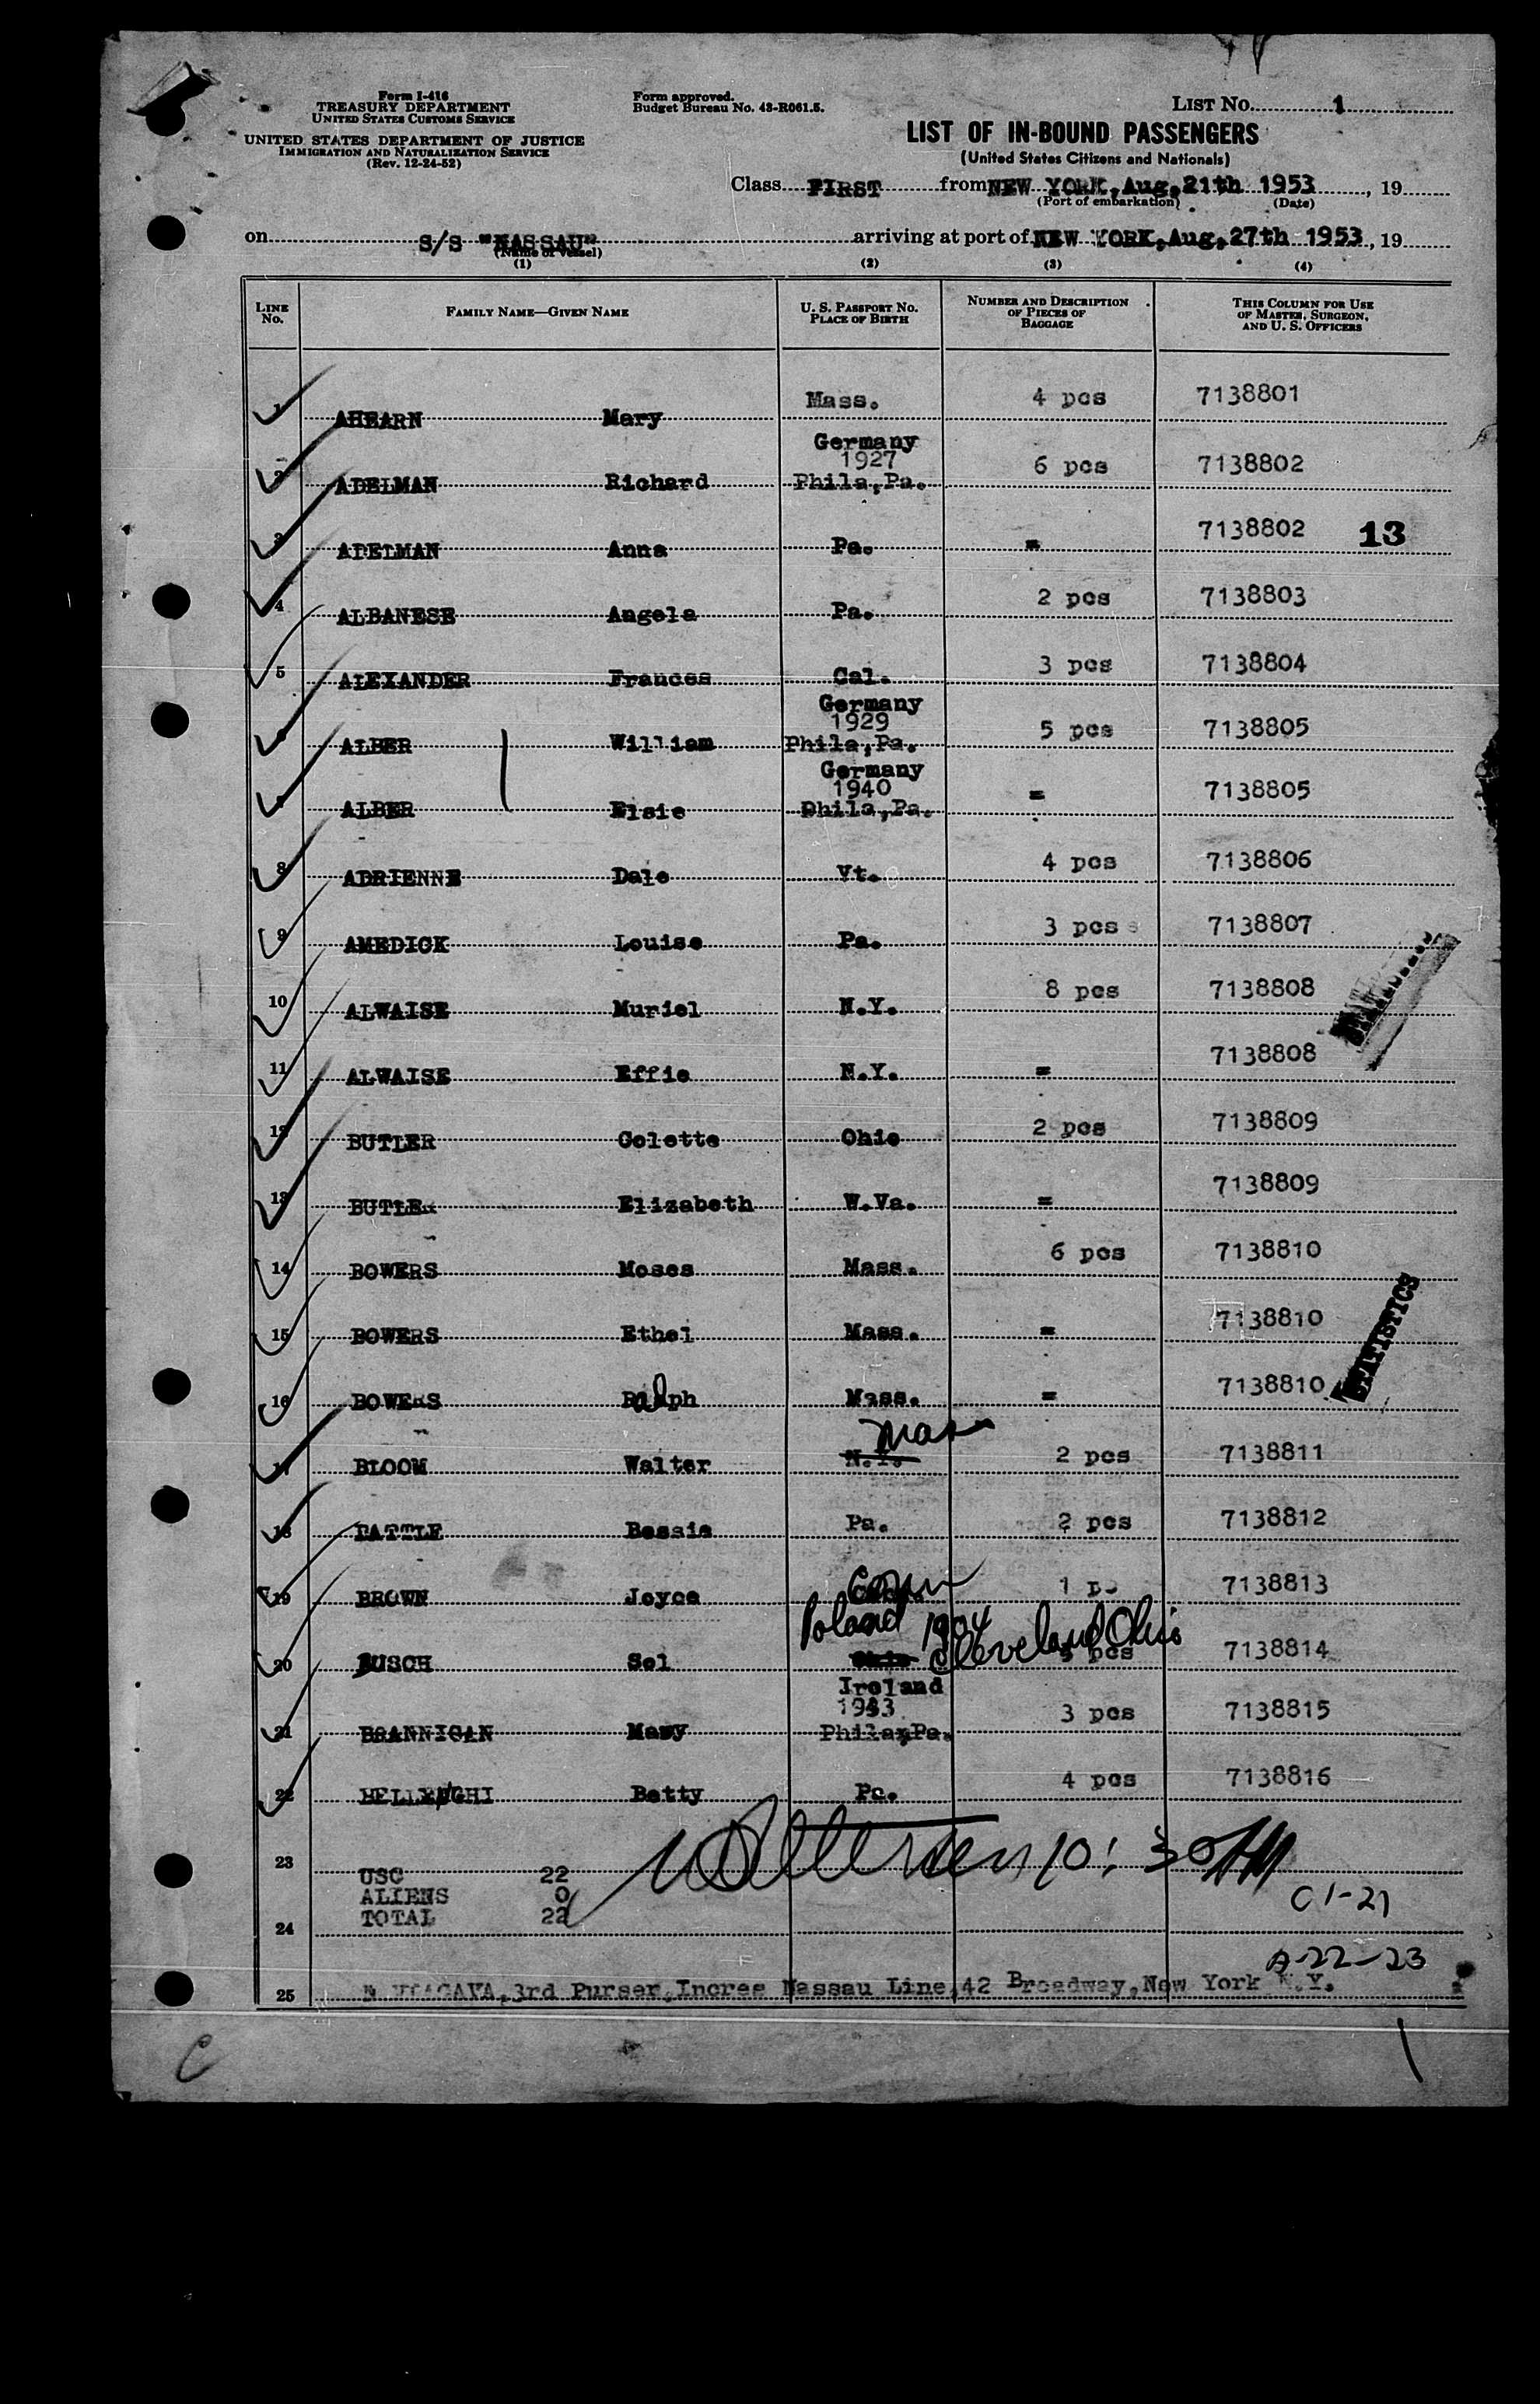 Form I-416
TREASURY DEPARTMENT
UNITED STATES CUSTOMS SERVICE
UNITED STATES DEPARTMENT OF JUSTICE
IMMIGRATION AND NATURALIZATION SERVICE
(Rev. 12-24-52)
Form approved.
Budget Bureau No. 43-R061.5.
LIST No. 1
LIST OF IN-BOUND PASSENGERS
(United States Citizens and Nationals)
Class FIRST from NEW YORK, Aug, 21th 1953, 19
(Port of embarkation) (Date)
on S/S "NASSAU" arriving at port of NEW YORK, Aug, 27th 1953, 19
(Name of vessel)
(1) (2) (3) (4)
LINE No. FAMILY NAME—GIVEN NAME U. S. PASSPORT No. PLACE OF BIRTH NUMBER AND DESCRIPTION OF PIECES OF BAGGAGE THIS COLUMN FOR USE OF MASTER, SURGEON, AND U. S. OFFICERS
1 AHEARN Mary Mass. 4 pcs 7138801
Germany
1927
2 ADELMAN Richard Phila,Pa. 6 pcs 7138802
3 ADELMAN Anna Pa. = 7138802 13
4 ALBANESE Angela Pa. 2 pcs 7138803
5 ALEXANDER Frances Cal. 3 pcs 7138804
Germany
1929
ALBER William Phila,Pa. 5 pcs 7138805
Germany
1940
ALBER Elsie Phila,Pa. = 7138805
8 ADRIENNE Dale Vt. 4 pcs 7138806
9 AMEDICK Louise Pa. 3 pcs 7138807
10 ALWAISE Muriel N.Y. 8 pcs 7138808
11 ALWAISE Effie N.Y. = 7138808
12 BUTLER Colette Ohio 2 pcs 7138809
13 BUTLER Elizabeth W.Va. = 7138809
14 BOWERS Moses Mass. 6 pcs 7138810
15 BOWERS Ethel Mass. = 7138810
STATISTICS
16 BOWERS Ralph Mass. = 7138810
Mass
17 BLOOM Walter N.Y. 2 pcs 7138811
18 BATTLE Bessie Pa. 2 pcs 7138812
19 BROWN Joyce Conn 1 pc 7138813
Poland 1904 Cleveland Ohio
20 BUSCH Sol Ohio pcs 7138814
Ireland
1943
21 BRANNIGAN Mary Phila,Pa. 3 pcs 7138815
22 Betty Pa. 4 pcs 7138816
10:30 AM
23
USC 22
ALIENS 0
TOTAL 22
C 1-21
24
A-22-23
25 3rd Purser, Incres Nassau Line, 42 Broadway, New York N.Y.
C